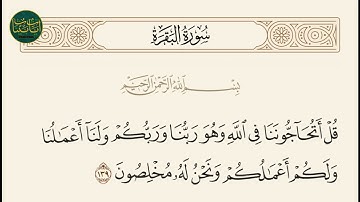 سُورَةُ البَقَرَةِ
بِسْمِ اللَّهِ الرَّحْمَٰنِ الرَّحِيمِ
قُلْ أَتُحَآجُّونَنَا فِى ٱللَّهِ وَهُوَ رَبُّنَا وَرَبُّكُمْ وَلَنَآ أَعْمَـٰلُنَا
وَلَكُمْ أَعْمَـٰلُكُمْ وَنَحْنُ لَهُۥ مُخْلِصُونَ ١٣٩